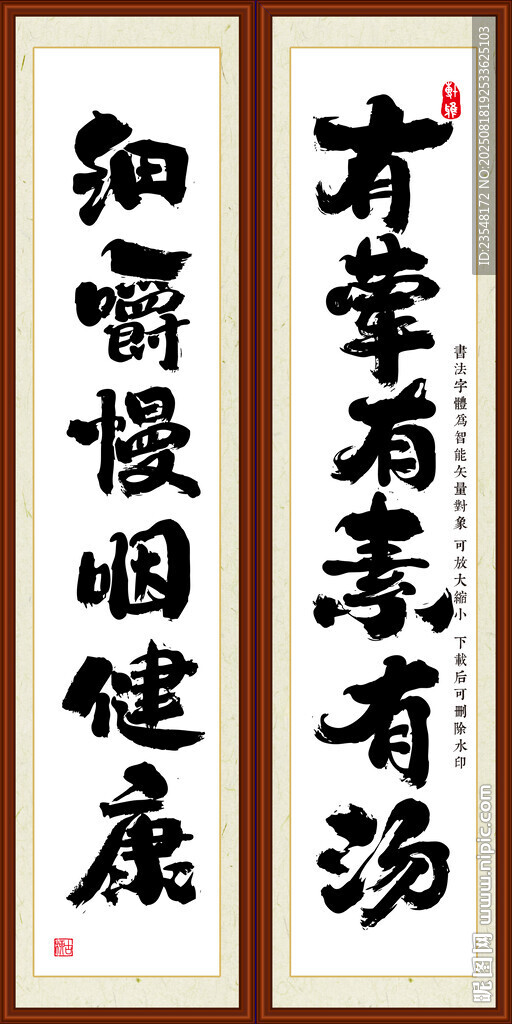 有荤有素有汤
细嚼慢咽健康
書法字體為智能矢量對象 可放大縮小 下載后可刪除水印
軒雅
ID:23548172 NO:20250818192533625103
昵图网 www.nipic.com